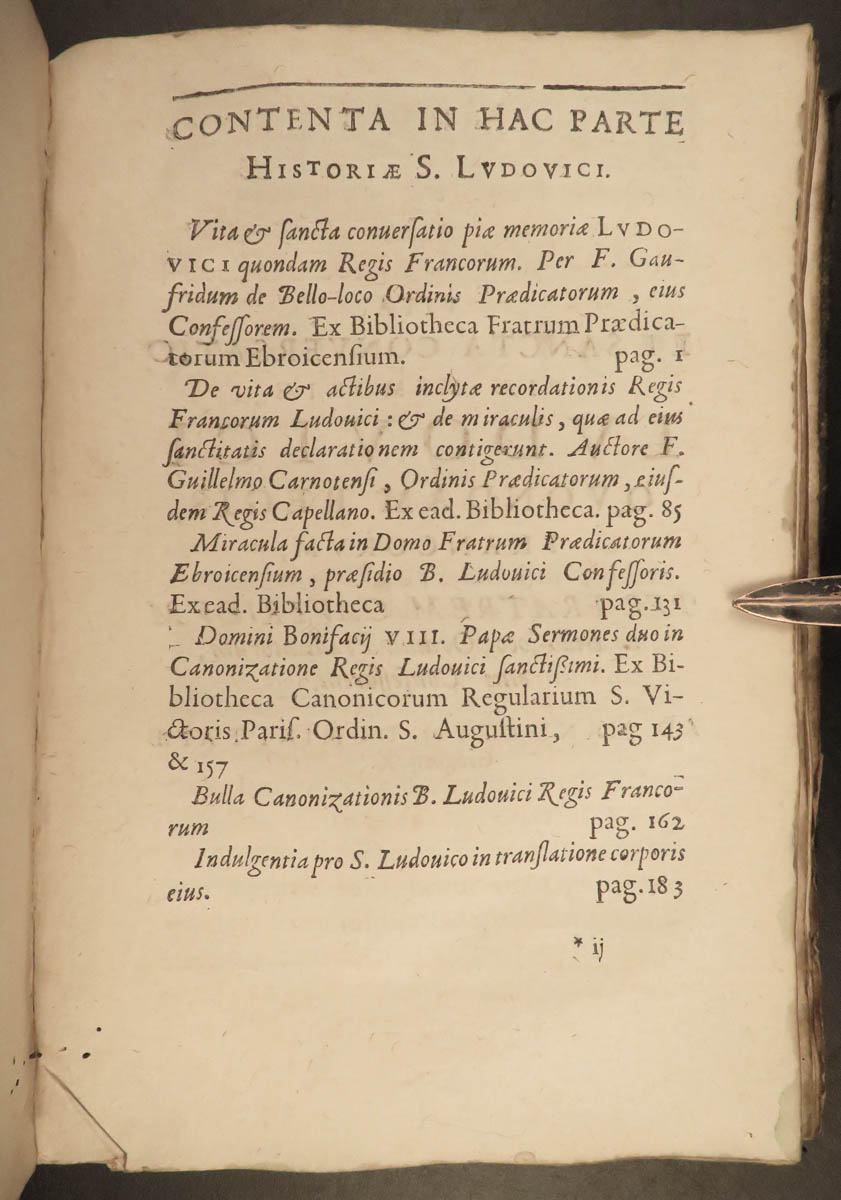 CONTENTA IN HAC PARTE
HISTORIÆ S. LVDOVICI.
Vita & ſancta conuerſatio piæ memoriæ LVDO-
VICI quondam Regis Francorum. Per F. Gau-
fridum de Bello-loco Ordinis Prædicatorum, eius
Confeſſorem. Ex Bibliotheca Fratrum Prædica-
torum Ebroicenſium. pag. 1
De vita & actibus inclytæ recordationis Regis
Francorum Ludouici: & de miraculis, quæ ad eius
ſanctitatis declarationem contigerunt. Auctore F.
Guillelmo Carnotenſi, Ordinis Prædicatorum, eiuſ-
dem Regis Capellano. Ex ead. Bibliotheca. pag. 85
Miracula facta in Domo Fratrum Prædicatorum
Ebroicenſium, præſidio B. Ludouici Confeſſoris.
Ex ead. Bibliotheca pag. 131
Domini Bonifacij VIII. Papæ Sermones duo in
Canonizatione Regis Ludouici ſanctißimi. Ex Bi-
bliotheca Canonicorum Regularium S. Vi-
ctoris Pariſ. Ordin. S. Auguſtini, pag 143
& 157
Bulla Canonizationis B. Ludouici Regis Franco-
rum pag. 162
Indulgentia pro S. Ludouico in tranſlatione corporis
eius. pag. 183
* ij